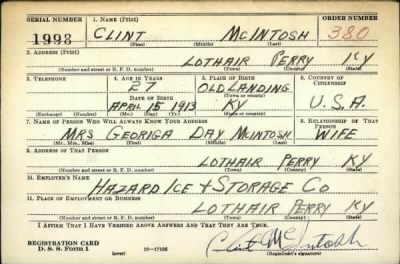 SERIAL NUMBER 1. NAME (Print) ORDER NUMBER
1998 CLINT McINTOSH 380
(First) (Middle) (Last)
2. ADDRESS (Print)
LOTHAIR PERRY KY
(Number and street or R. F. D. number) (Town) (County) (State)
3. TELEPHONE 4. AGE IN YEARS 5. PLACE OF BIRTH 6. COUNTRY OF CITIZENSHIP
27 OLD LANDING
DATE OF BIRTH (Town or county)
APRIL 15 1913 KY U.S.A.
(Exchange) (Number) (Mo.) (Day) (Yr.) (State or country)
7. NAME OF PERSON WHO WILL ALWAYS KNOW YOUR ADDRESS 8. RELATIONSHIP OF THAT PERSON
MRS GEORIGA DAY McINTOSH WIFE
(Mr., Mrs., Miss) (First) (Middle) (Last)
9. ADDRESS OF THAT PERSON
LOTHAIR PERRY KY
(Number and street or R. F. D. number) (Town) (County) (State)
10. EMPLOYER'S NAME
HAZARD ICE + STORAGE CO
11. PLACE OF EMPLOYMENT OR BUSINESS
LOTHAIR PERRY KY
(Number and street or R. F. D. number) (Town) (County) (State)
I AFFIRM THAT I HAVE VERIFIED ABOVE ANSWERS AND THAT THEY ARE TRUE.
REGISTRATION CARD
D. S. S. Form 1 (over) 16—17105 Clint McIntosh
(Registrant's signature)